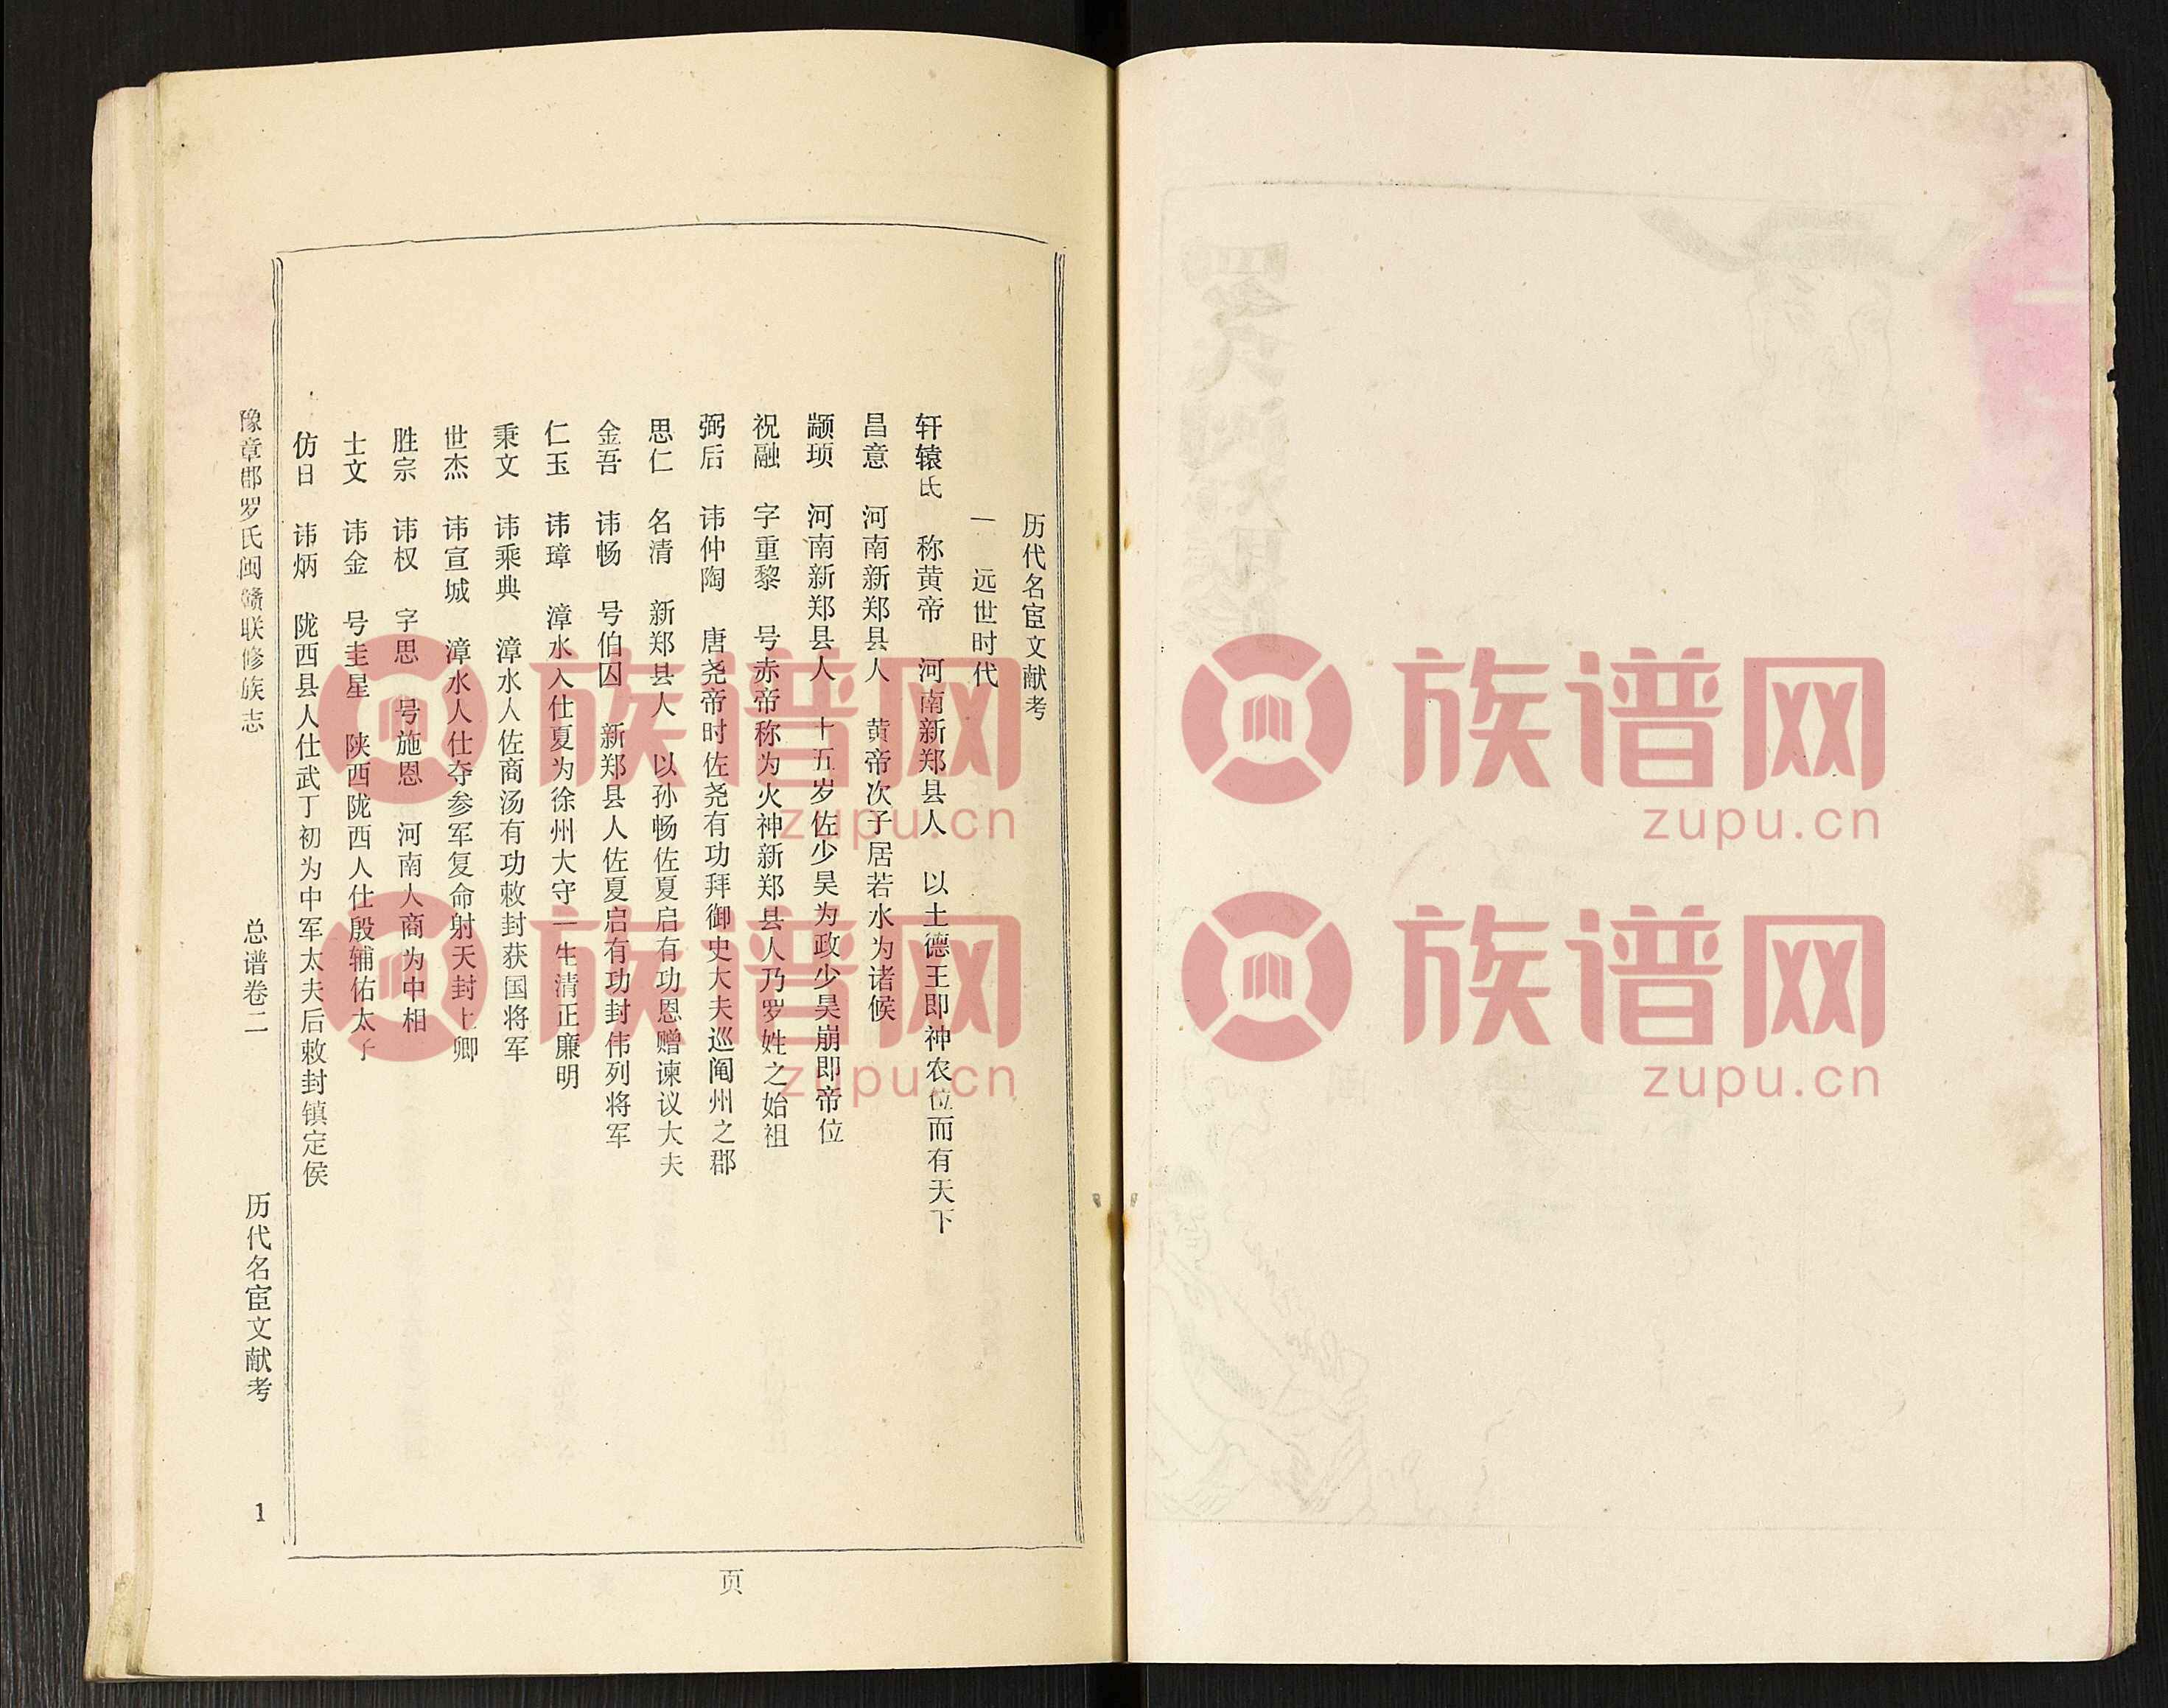 历代名宦文献考
一 远世时代
轩辕氏 称黄帝 河南新郑县人 以土德王即神农位而有天下
昌意 河南新郑县人 黄帝次子居若水为诸候
颛顼 河南新郑县人 十五岁佐少昊为政少昊崩即帝位
祝融 字重黎 号赤帝称为火神新郑县人乃罗姓之始祖
弼后 讳仲陶 唐尧帝时佐尧有功拜御史大夫巡阉州之郡
思仁 名清 新郑县人 以孙畅佐夏启有功恩赠谏议大夫
金吾 讳畅 号伯囚 新郑县人佐夏启有功封伟列将军
仁玉 讳璋 漳水人仕夏为徐州大守一生清正廉明
秉文 讳乘典 漳水人佐商汤有功敕封获国将军
世杰 讳宣城 漳水人仕夺参军复命射天封上卿
胜宗 讳权 字思 号施恩 河南人商为中相
士文 讳金 号圭星 陕西陇西人仕殷辅佑太子
仿日 讳炳 陇西县人仕武丁初为中军太夫后敕封镇定侯
豫章郡罗氏闽赣联修族志 总谱卷二 历代名宦文献考 1
页
族谱网
zupu.cn
族谱网
zupu.cn
族谱网
zupu.cn
族谱网
zupu.cn